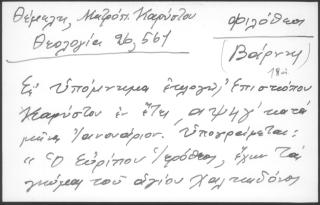 Θέμελη, Μητρόπ. Καρύστου
Θεολογία 26, 561
Φιλόθεος
(Βάρνης
182
Εἰς Ὑπόμνημα ἐκλογῆς Ἐπισκόπου
Καρύστου ἐν ἔτει, αψϟγ' κατὰ
μῆνα Ἰαννουάριον. Ὑπογράφεται:
"Ὁ Εὐρίπου Ἱερόθεος, ἔχων
γνώμην τοῦ ἁγίου Χαλκηδόνος